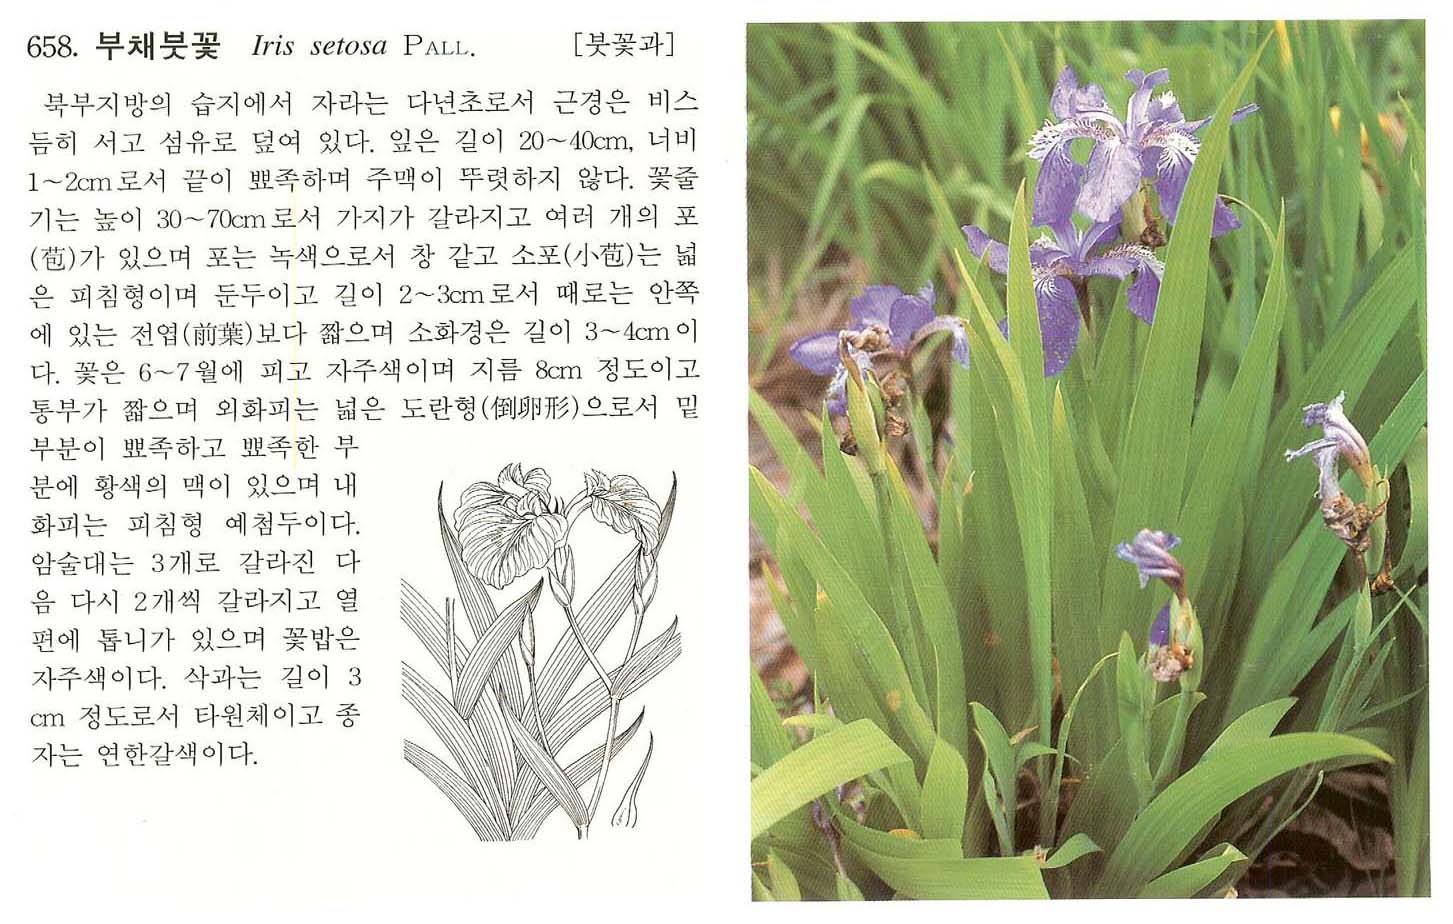 658. 부채붓꽃 Iris setosa PALL. [붓꽃과]
북부지방의 습지에서 자라는 다년초로서 근경은 비스
듬히 서고 섬유로 덮여 있다. 잎은 길이 20~40cm, 너비
1~2cm로서 끝이 뾰족하며 주맥이 뚜렷하지 않다. 꽃줄
기는 높이 30~70cm로서 가지가 갈라지고 여러 개의 포
(苞)가 있으며 포는 녹색으로서 창 같고 소포(小苞)는 넓
은 피침형이며 둔두이고 길이 2~3cm로서 때로는 안쪽
에 있는 전엽(前葉)보다 짧으며 소화경은 길이 3~4cm이
다. 꽃은 6~7월에 피고 자주색이며 지름 8cm 정도이고
통부가 짧으며 외화피는 넓은 도란형(倒卵形)으로서 밑
부분이 뾰족하고 뾰족한 부
분에 황색의 맥이 있으며 내
화피는 피침형 예첨두이다.
암술대는 3개로 갈라진 다
음 다시 2개씩 갈라지고 열
편에 톱니가 있으며 꽃밥은
자주색이다. 삭과는 길이 3
cm 정도로서 타원체이고 종
자는 연한갈색이다.